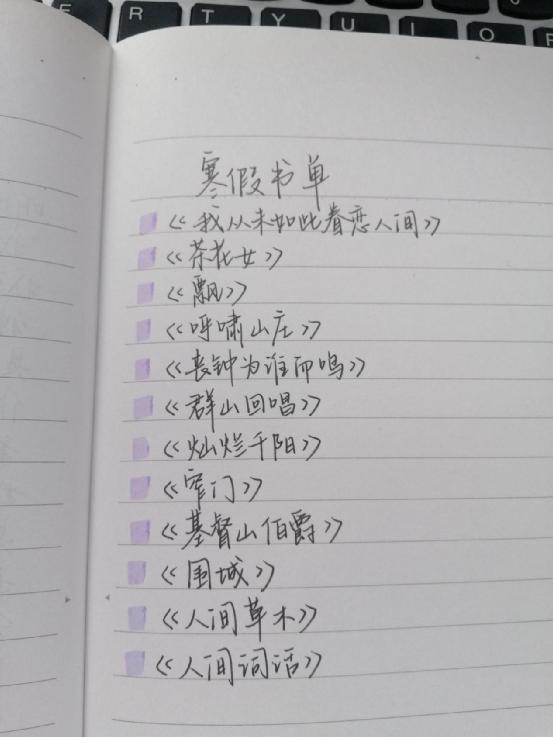 E R T Y U I O P
寒假书单
《我从未如此眷恋人间》
《茶花女》
《飘》
《呼啸山庄》
《丧钟为谁而鸣》
《群山回唱》
《灿烂千阳》
《窄门》
《基督山伯爵》
《围城》
《人间草木》
《人间词话》